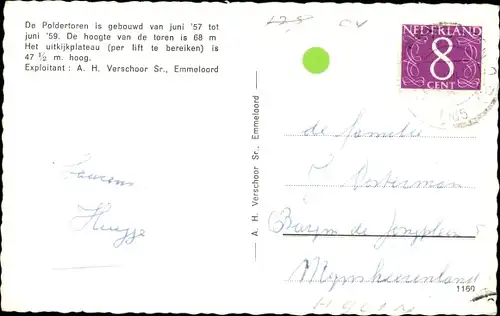 De Poldertoren is gebouwd van juni '57 tot
juni '59. De hoogte van de toren is 68 m
Het uitkijkplateau (per lift te bereiken) is
47 ½ m. hoog.
Exploitant : A. H. Verschoor Sr., Emmeloord
A. H. Verschoor Sr., Emmeloord
NEDERLAND
8
CENT
de familie
J. Oosterman
Burgm de Jongplein 5
Mijnsheerenland
1160